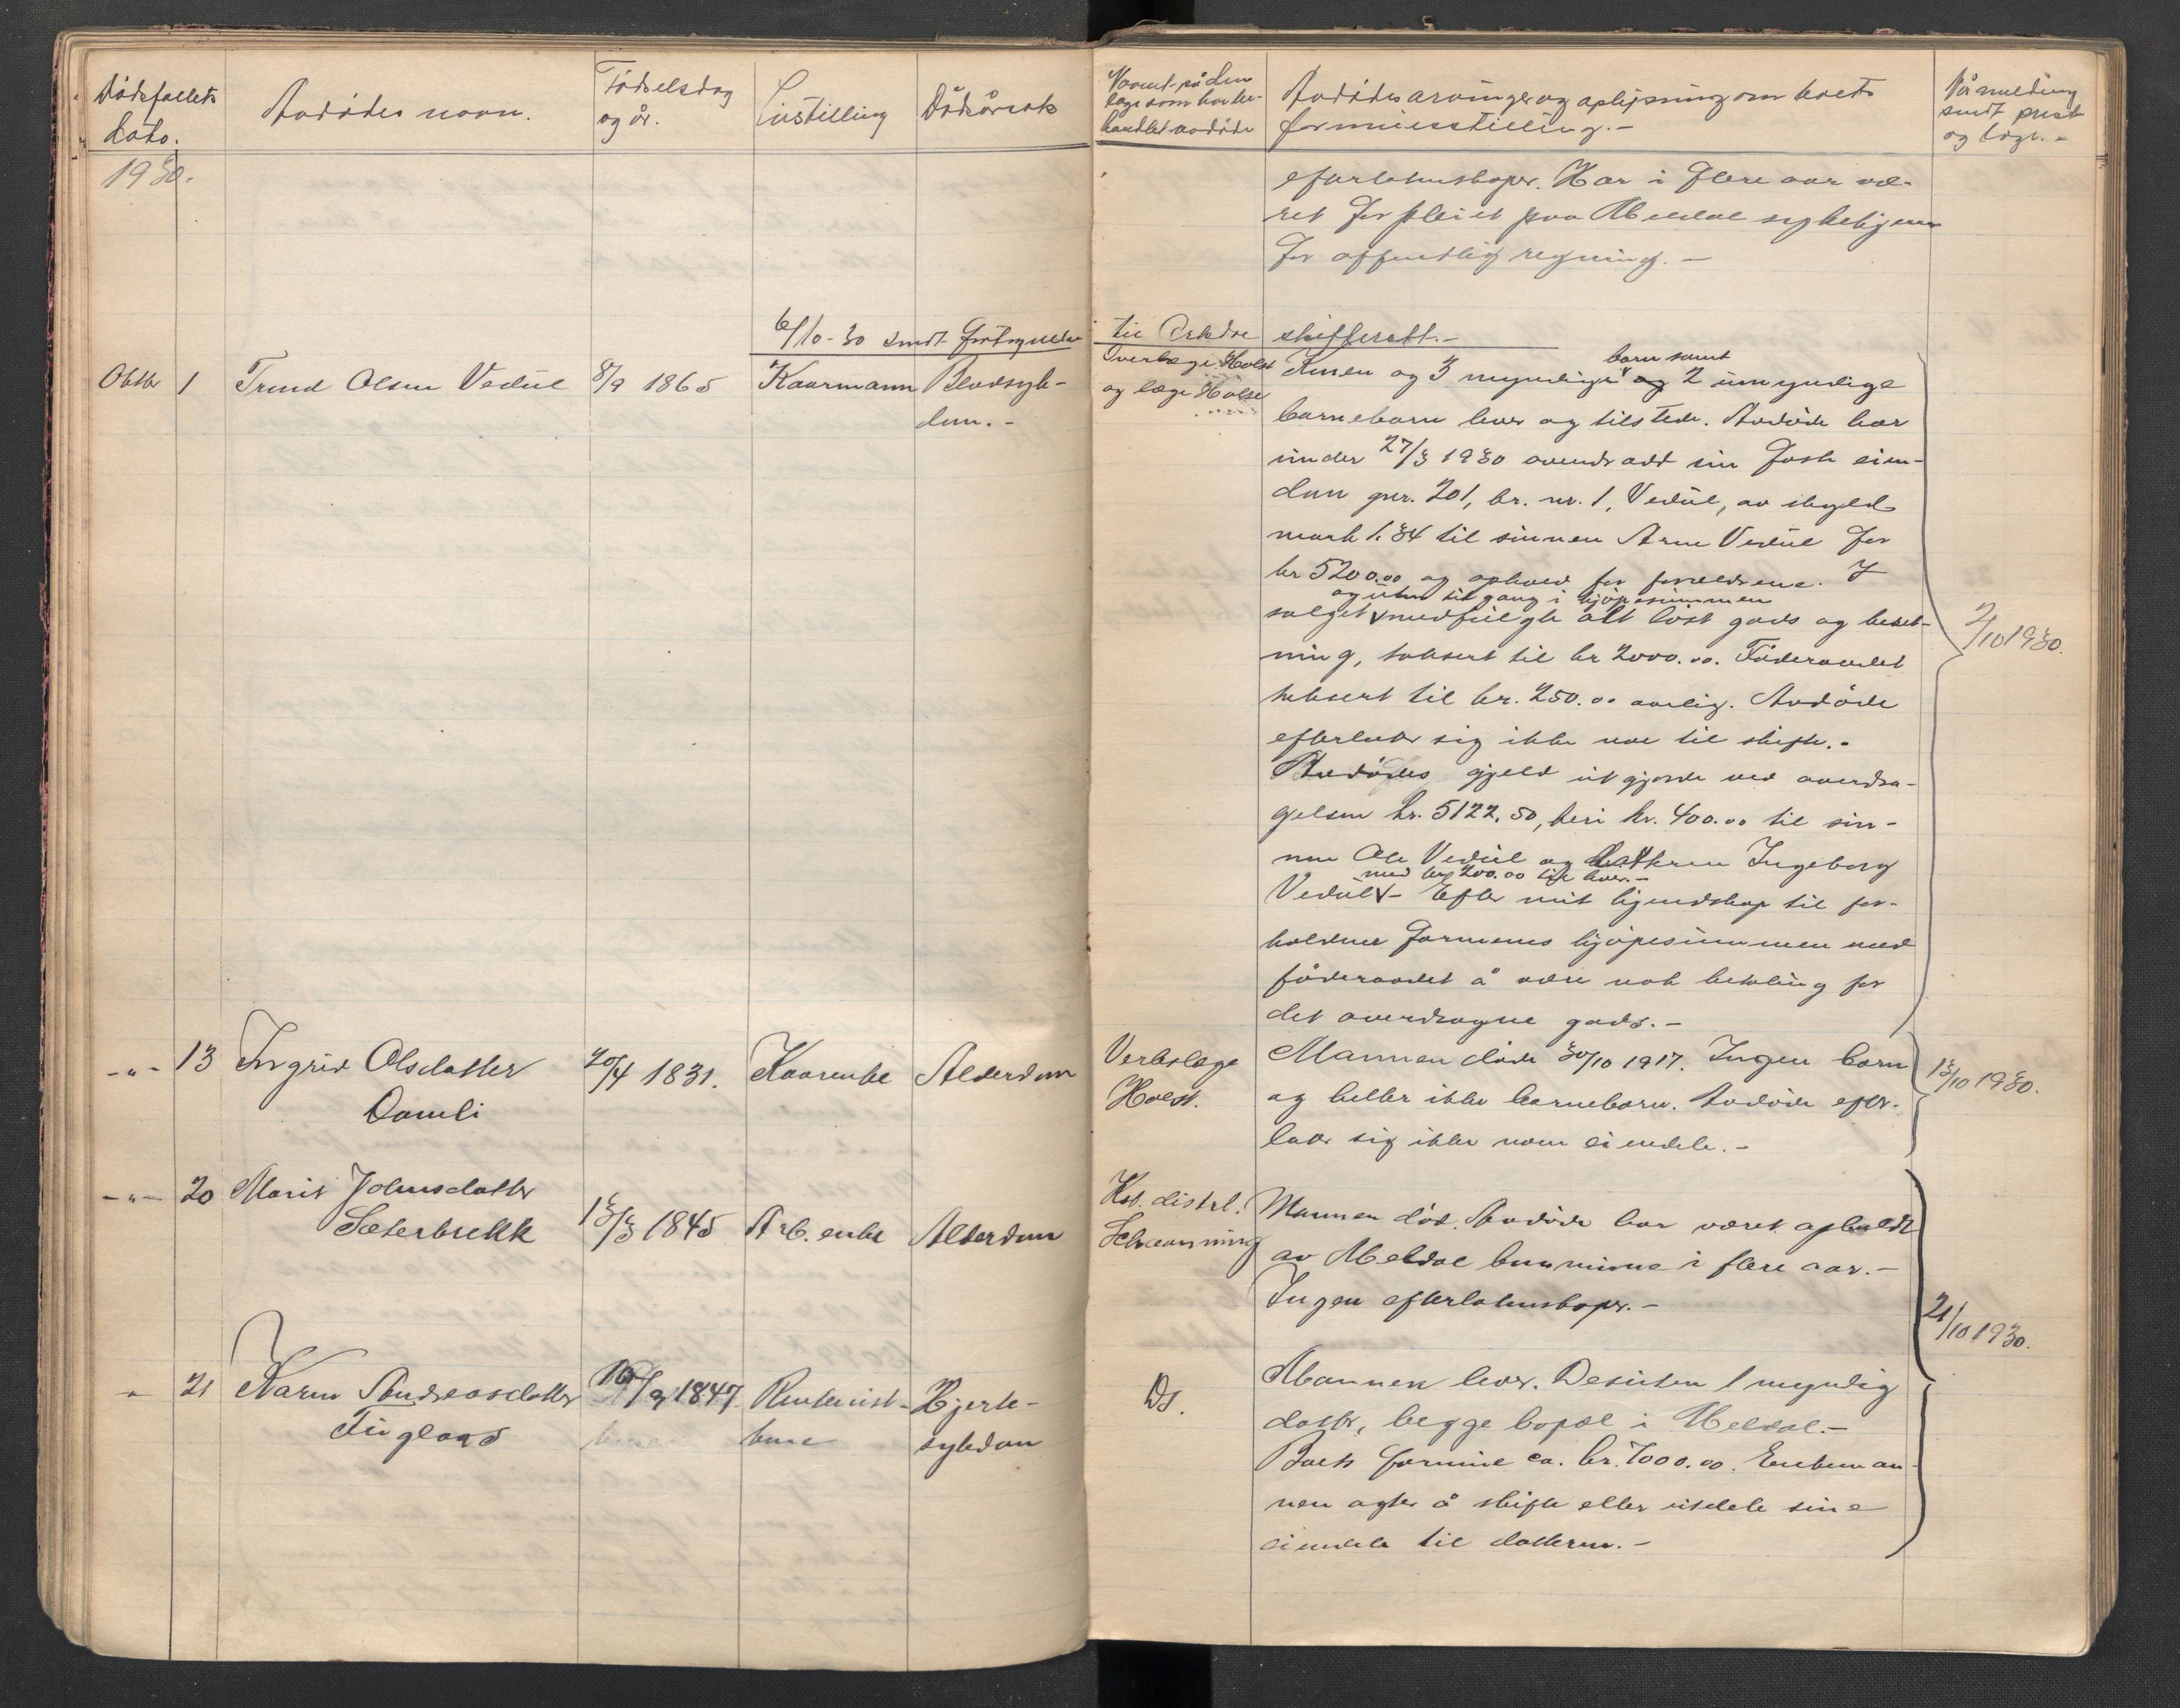 Dødsfallets
dato.
Avdødes navn.
Fødselsdag
og år.
Livstilling
Dødsårsak
Navnet på den
læge som har be-
handlet avdøde
Avdødes arvinger og oplysning om boets
formuesstilling.-
Påmelding
sendt prest
og lagr.-
1930.
efterlatenskaper. Har i flere aar væ-
ret forpleiet paa Meldal sykehjem
for offentlig regning.-
6/10-30 sendt fortegnelse til Orkdøe skifterett.-
Oktbr 1 Trond Olsen Vedul 8/9 1865 Kaarmann Blodsyk-
dom.-
Overlæge Holst
og læge Holse
barn samt
Konen og 3 myndige og 2 umyndige
barnebarn lever og tilstede. Avdøde har
under 27/3 1930 avendradd sin faste eien-
dom gnr. 201, br. nr. 1, Vedul, av skyld
mark 1.34 til sønnen Arne Vedul for
kr 5200.00 og ophold for forældrene. I
og uten tilgang i kjøpesummen
salget medfulgte alt løst gods og beset-
ning, taksert til kr 2000.00. Føderaadet
taksert til kr. 250.00 aarlig. Avdøde
efterlater sig ikke noe til skifte.-
Avdødes gjeld utgjorde ved averdra-
gelsen kr. 5122,50, heri kr. 400.00 til søn-
nen Ole Vedul og datteren Ingeborg
med kr 200.00 til hver.-
Vedul - Efter mit kjendskap til for-
holdene formenes kjøpesummen med
føderaadet å være nok betaling for
det averdragne gods.-
2/10 1930.
-"- 13 Ingrid Olsdatter
Damli
20/4 1831. Kaarenke Alderdom
Verkslæge
Holst.
Mannen døde 30/10 1917. Ingen barn
og heller ikke barnebarn. Avdøde efter-
later sig ikke noen eiendele.-
13/10 1930.
-"- 20 Marit Johnsdatter
Sæterbrekk
13/3 1845 Arb. enke Alderdom
Kst. distrl.
Schanning
Mannen død. Avdøde har været opholdt
av Meldal kommune i flere aar.-
Ingen efterlatenskaper.-
21/10 1930.
" 21 Karen Andreasdatter
Fuglaas
16/9 1847. Rentenist-
kone
Hjerte-
sykdom
Ds.
Mannen lever. Desuten 1 myndig
datter, begge bopæl i Meldal.-
Boets formue ca. kr. 7000.00. Enkeman
nen agter å skifte eller utdele sine
eiendele til datteren.-